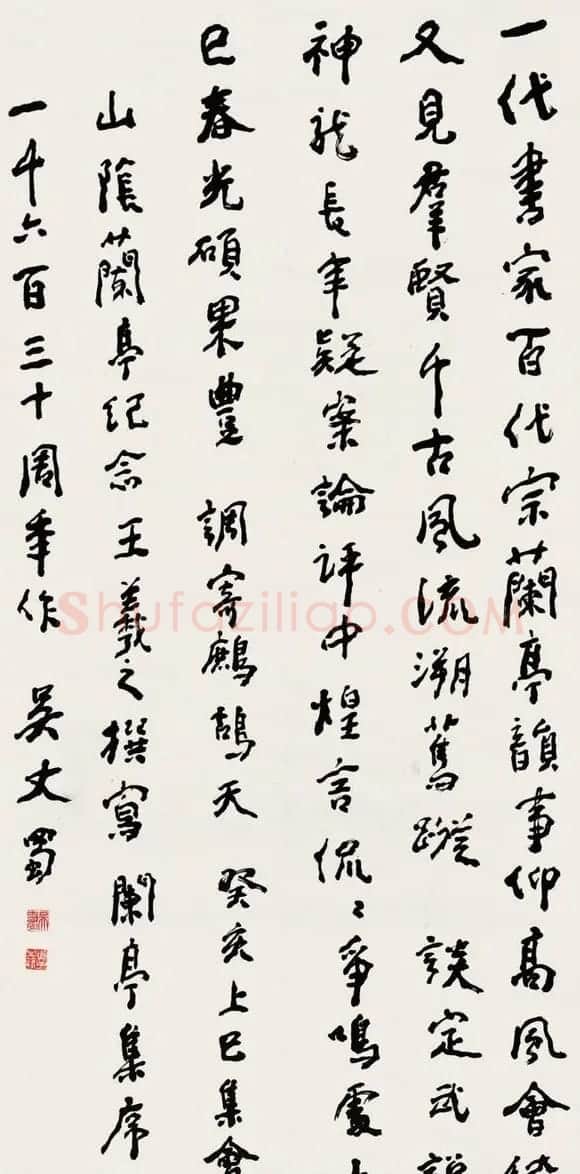 一代書家百代宗蘭亭韻事仰高風會
又見羣賢千古風流溯舊蹤 談定武說
神龍長年疑案論評中煌言侃〻爭鳴處
巳春光碩果豐 調寄鷓鴣天 癸亥上巳集會
山陰蘭亭紀念王羲之撰寫蘭亭集序
一千六百三十周年作 吳丈蜀
Shufaziliao.COM